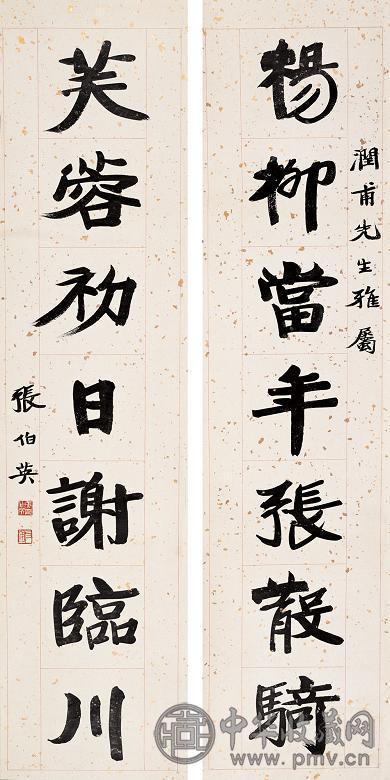 潤甫先生雅屬
楊柳當年張散騎
芙蓉初日謝臨川
張伯英
中华收藏网
www.pmv.cn